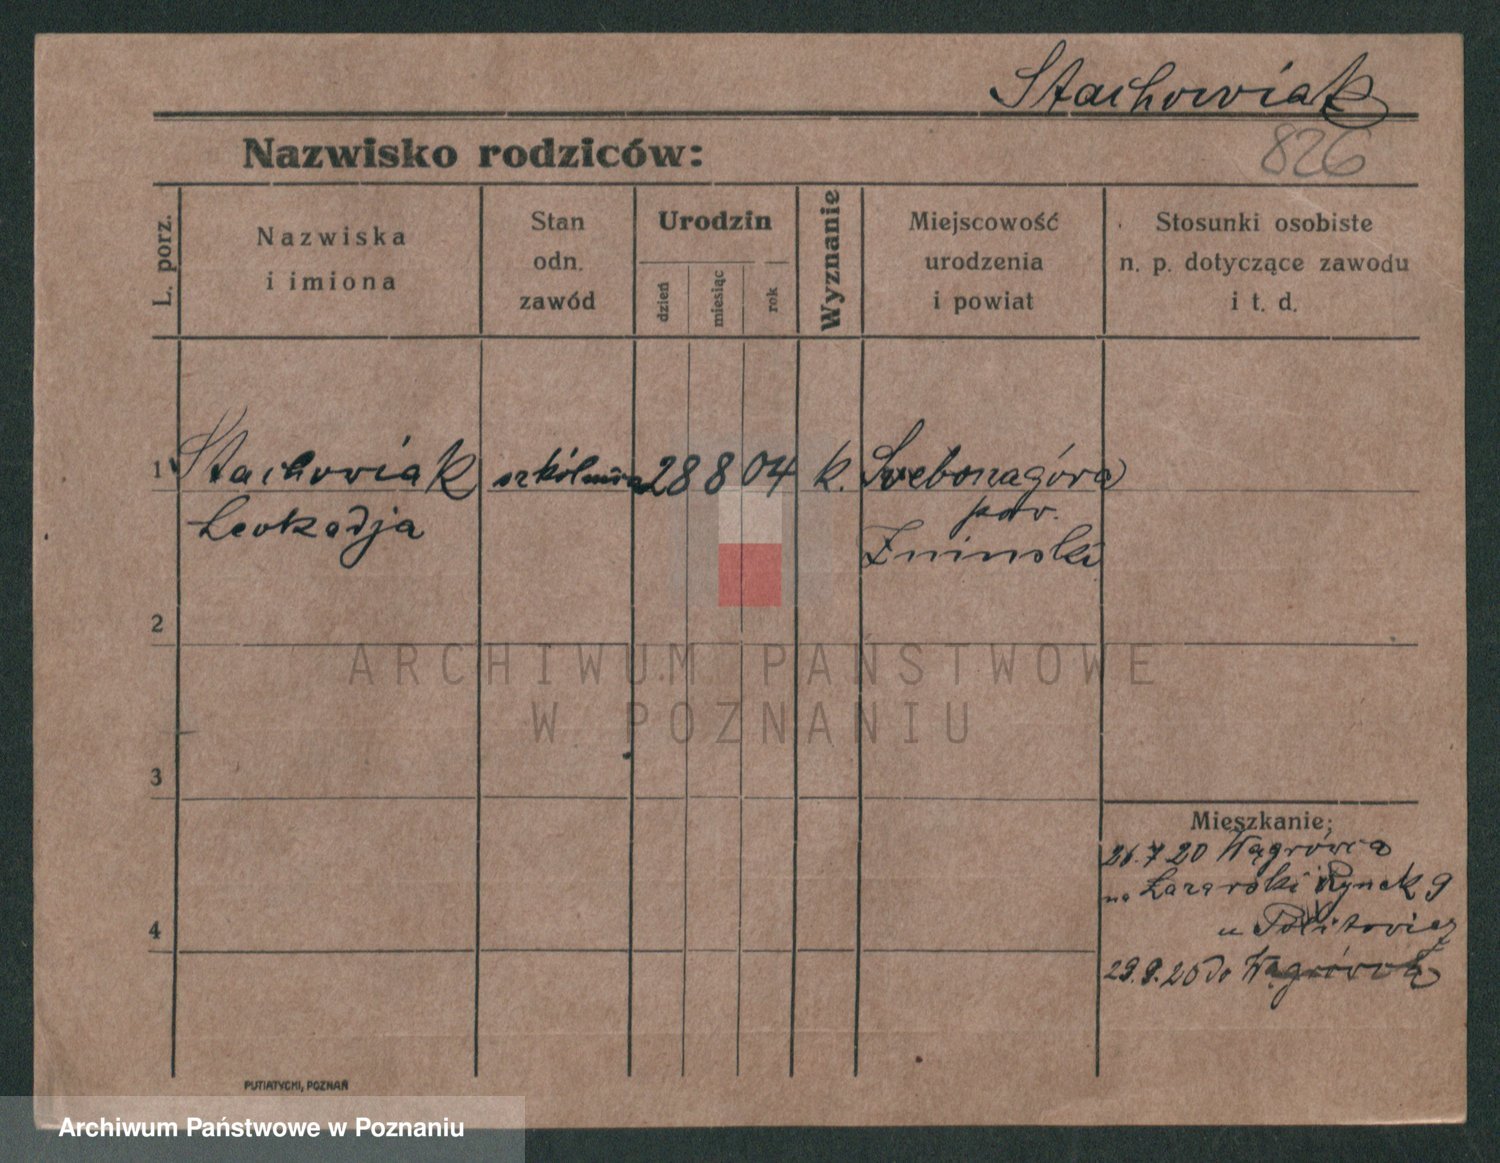 Stachowiak
826
Nazwisko rodziców:
L. porz.
Nazwiska
i imiona
Stan
odn.
zawód
Urodzin
dzień
miesiąc
rok
Wyznanie
Miejscowość
urodzenia
i powiat
Stosunki osobiste
n. p. dotyczące zawodu
i t. d.
1 Stachowiak 28 8 04 k. Srebrnagóra
Leokadja pow.
Żniński
2
ARCHIWUM PAŃSTWOWE
W POZNANIU
3
Mieszkanie:
26.7 20 Wągrówca
na Łazarski Rynek 9
u
4
29.9.20 do Wągrówca
PUTIATYCKI, POZNAŃ
Archiwum Państwowe w Poznaniu